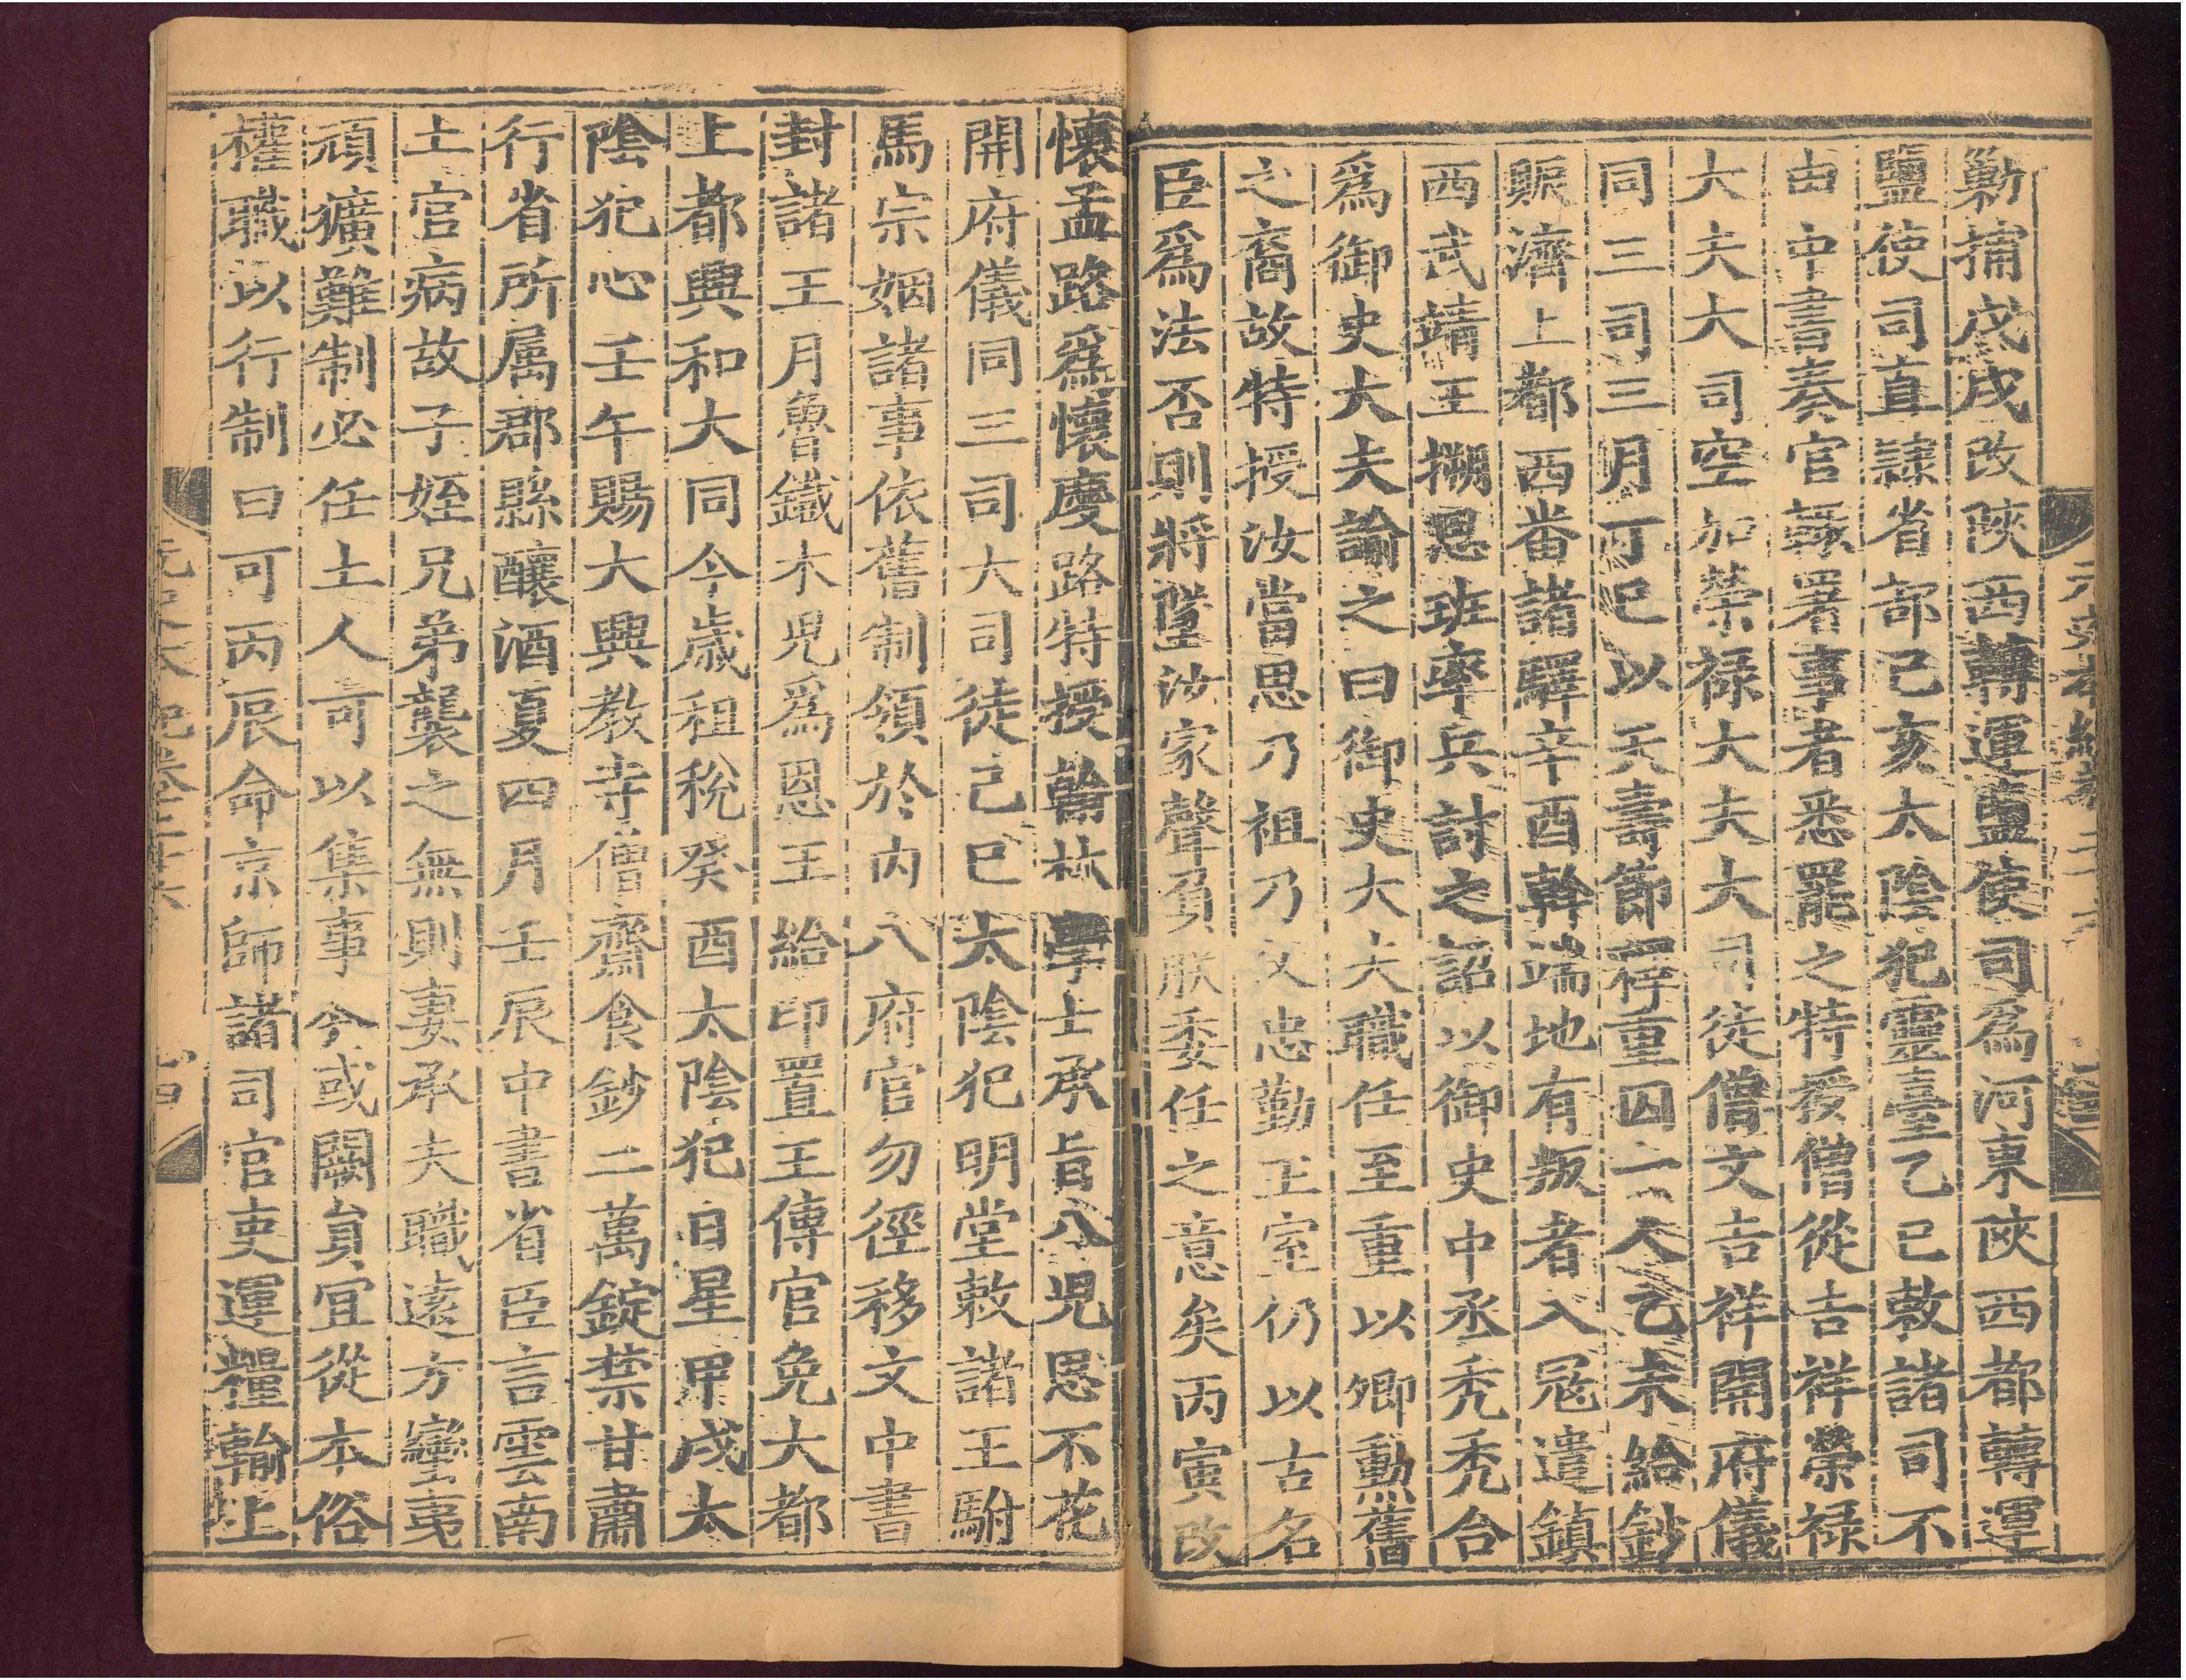 勦捕戊戌改陝西轉運鹽使司爲河東陝西都轉運
鹽使司直隷省部己亥太陰犯靈臺乙巳敕諸司不
由中書奏官輒署事者悉罷之特授僧從吉祥榮禄
大夫大司空加榮禄大夫大司徒僧文吉祥開府儀
同三司三月丁巳以天壽節釋重囚一人乙未給鈔
賑濟上都西番諸驛辛酉斡端地有叛者入冦遣鎮
西武靖王搠思班率兵討之詔以御史中丞秃秃合
爲御史大夫諭之曰御史大夫職任至重以卿勳舊
之裔故特授汝當思乃祖乃父忠勤王室仍以古名
臣爲法否則將墜汝家聲負朕委任之意矣丙寅改
懷孟路爲懷慶路特授翰林學士承旨八児思不花
開府儀同三司大司徒己巳太陰犯明堂敕諸王駙
馬宗姻諸事依舊制領於内八府官勿徑移文中書
封諸王月魯鐵木児爲恩王給印置王傅官免大都
上都興和大同今歳租稅癸酉太陰犯日星甲戌太
陰犯心壬午賜大興教寺僧齋食鈔二萬錠禁甘肅
行省所属郡縣釀酒夏四月壬辰中書省臣言雲南
土官病故子姪兄弟襲之無則妻承夫職遠方蠻夷
頑獷難制必任土人可以集事今或闕員宜從本俗
權職以行制曰可丙辰命京師諸司官吏運糧輸上
元史本紀卷二十六
四